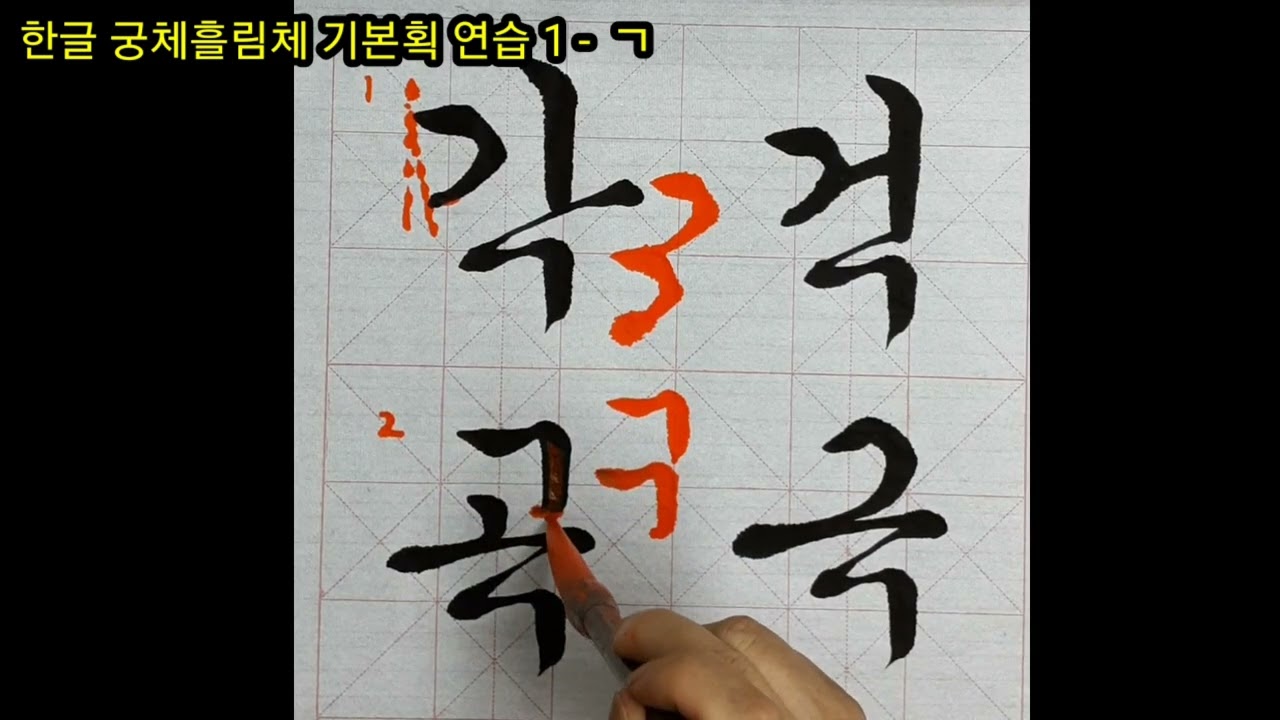 한글 궁체흘림체 기본획 연습 1 - ㄱ
1
각 걱
ㄱ
ㄱ
2
곡 극
ㄱ
ㄱ